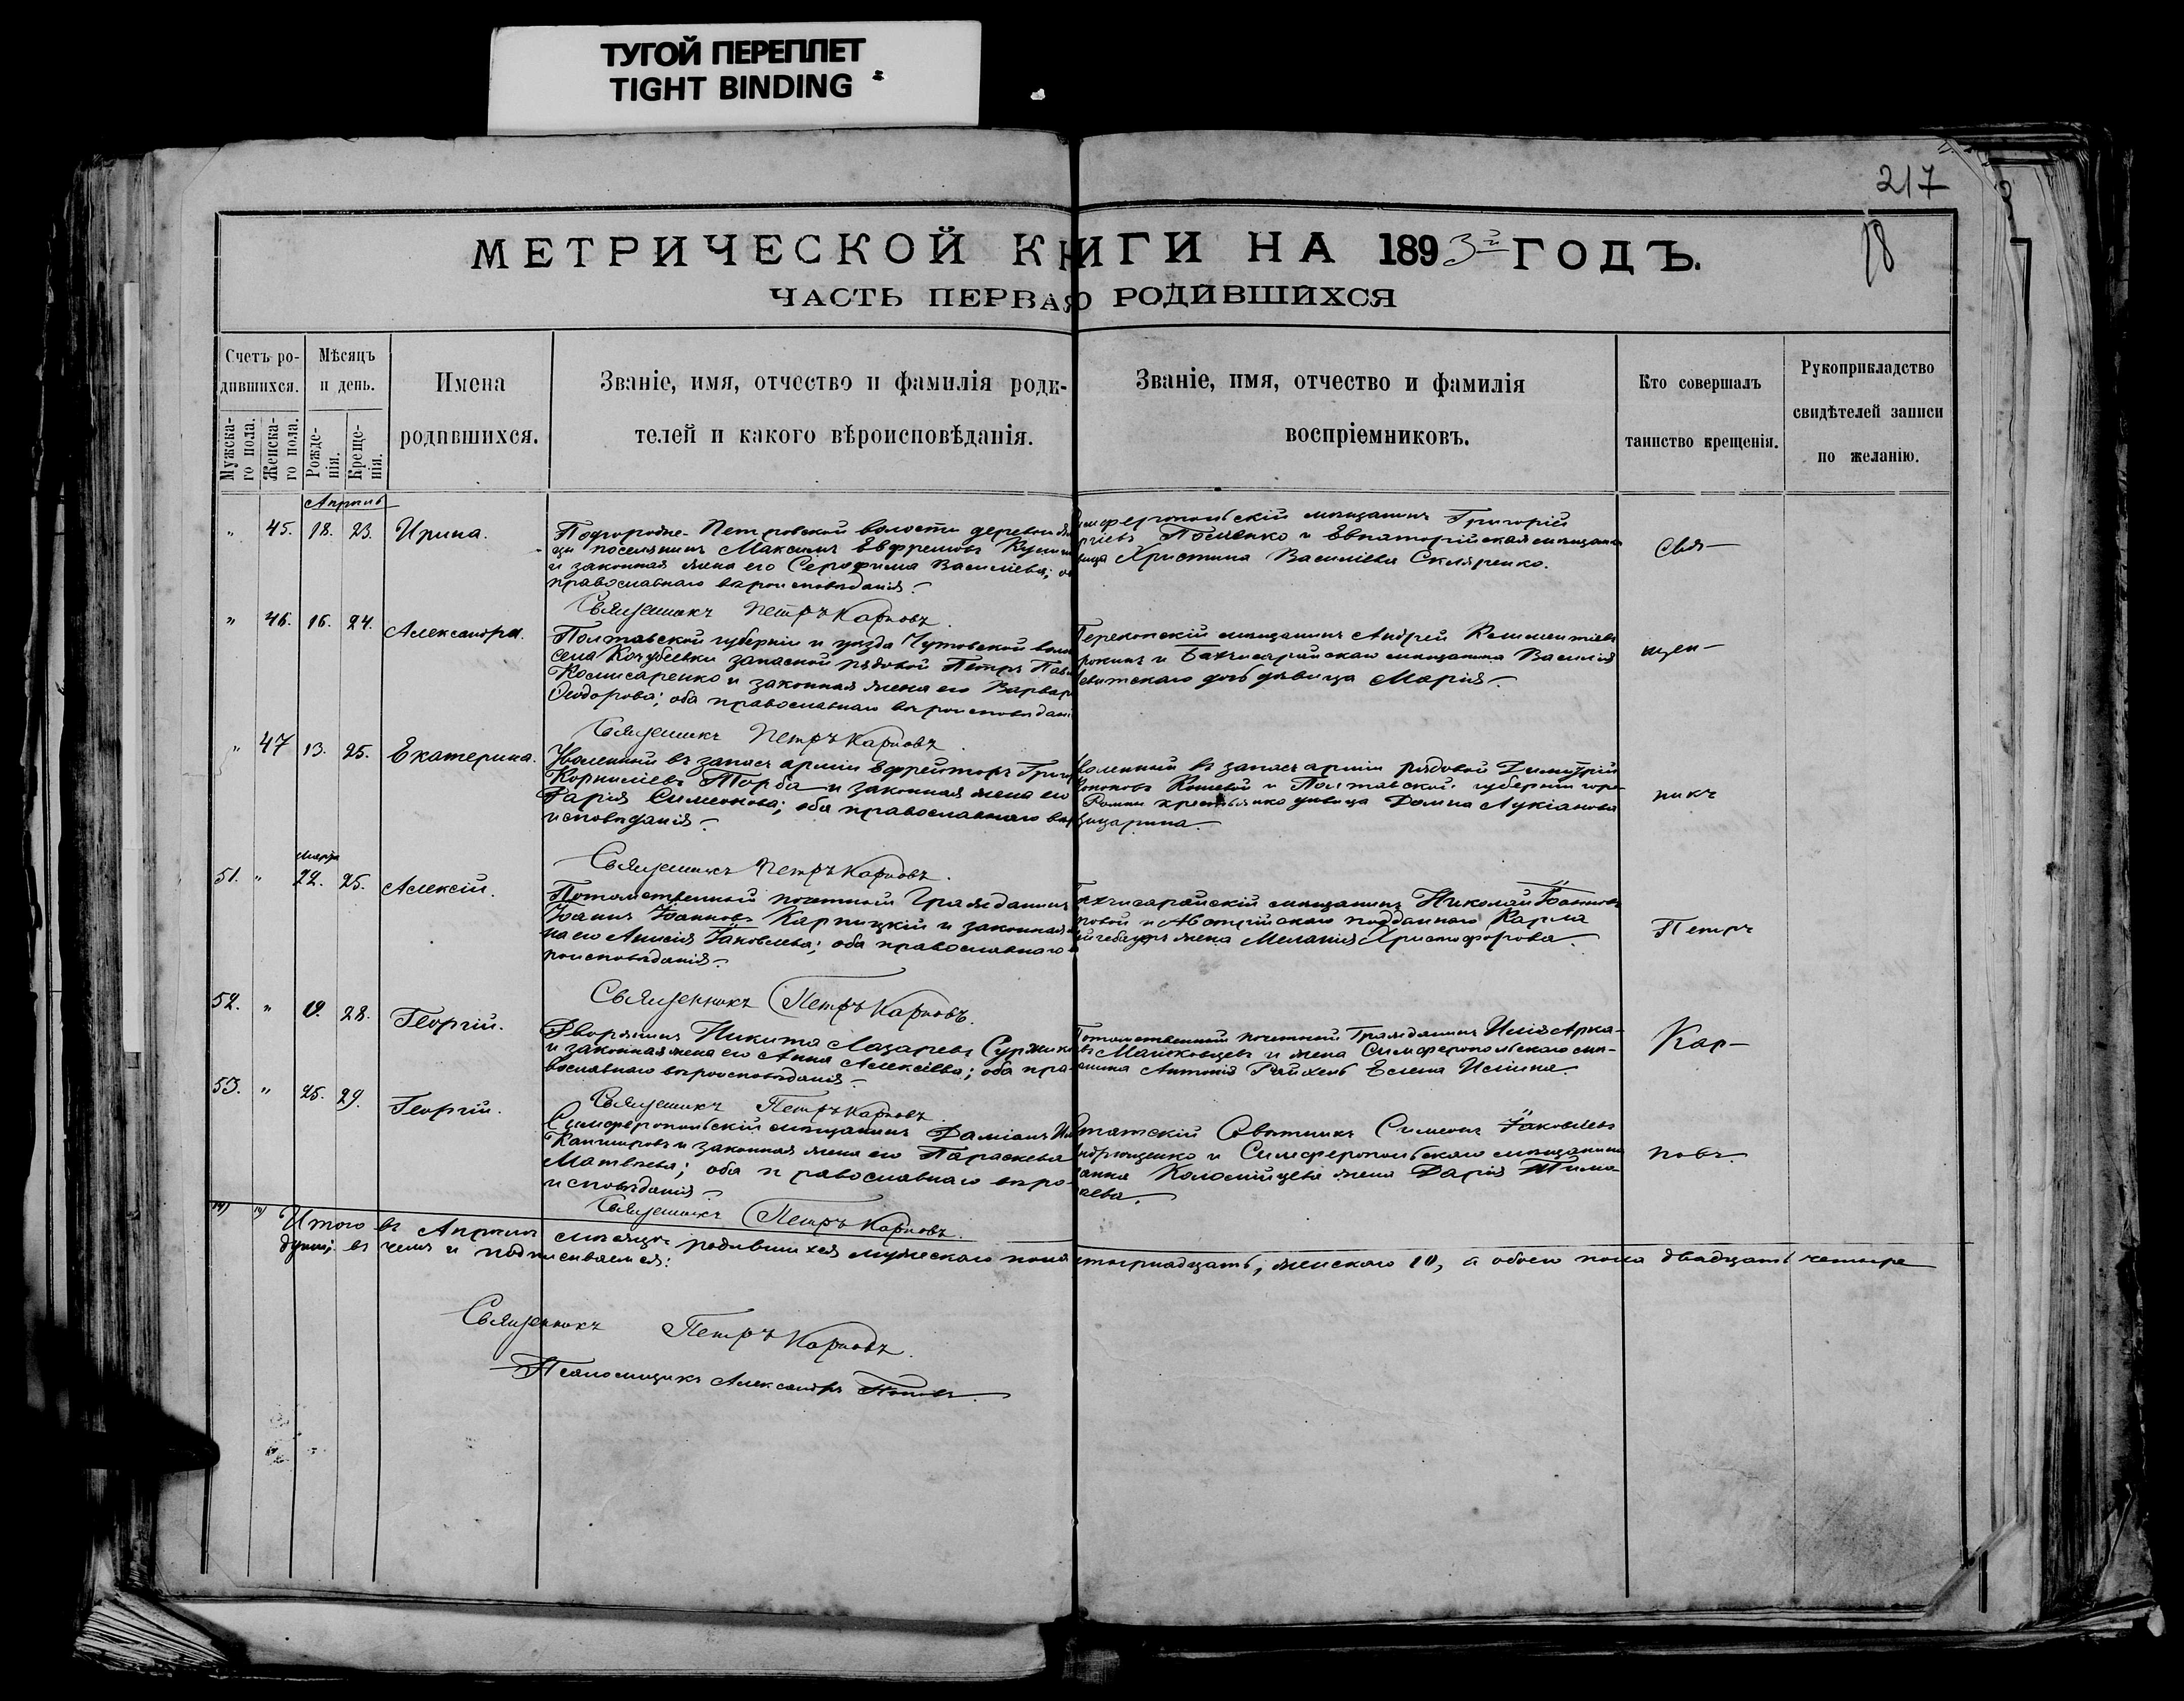 ТУГОЙ ПЕРЕПЛЕТ
TIGHT BINDING
217
18
МЕТРИЧЕСКОЙ КНИГИ НА 1893й ГОДЪ.
ЧАСТЬ ПЕРВАЯ О РОДИВШИХСЯ
Счетъ ро-
дившихся.
Мужска-
го пола.
Женска-
го пола.
Мѣсяцъ
и день.
Рожде-
нія.
Креще-
нія.
Имена
родившихся.
Званіе, имя, отчество и фамилія роди-
телей и какого вѣроисповѣданія.
Званіе, имя, отчество и фамилія
воспріемниковъ.
Кто совершалъ
таинство крещенія.
Рукоприкладство
свидѣтелей записи
по желанію.
Апрѣль
" 45. 18. 23. Ирина.
Подгородне-Петровской волости деревни
поселянинъ Максимъ Евфремовъ
и законная жена его Серафима Василіева;
православнаго вѣроисповѣданія.
Священникъ Петръ Карповъ.
мферопольскій мѣщанинъ Григорій
и Евпаторійская мѣщанка
вица Христина Василіева Скляренко.
Свя-
" 46. 16. 24. Александра.
Полтавской губерніи и уѣзда Чутовской воло
села Кочубеевки запасной рядовой Петръ Пав
Комисаренко и законная жена его Варвар
Ѳеодорова; оба православнаго вѣроисповѣдані
Священникъ Петръ Карповъ.
Перекопскій мѣщанинъ Андрей Климентіевъ
и Бахчисарайскаго мѣщанина Василія
дочь дѣвица Марія.
щен-
" 47 13. 25. Екатерина.
Уволенный въ запасъ арміи Ефрейторъ Григ
Корниліевъ Торба и законная жена его
Дарія Симеонова; оба православнаго вѣр
исповѣданія.
Священникъ Петръ Карповъ.
воленный въ запасъ арміи рядовой Димитрій
Кошевой и Полтавской губерніи горо
Ромны крестьянка дѣвица Домна Лукіанова
никъ
Марта
51. " 22. 25. Алексій.
Потомственный почетный Гражданинъ
Іоаннъ Іоанновъ Карпицкій и законная
на его Анисія Іаковлева; оба православнаго
роисповѣданія.
Священникъ Петръ Карповъ.
ахчисарайскій мѣщанинъ Николай Іоанновъ
и Австрійскаго подданнаго Карла
жена Меланія Христофорова.
Петръ
52. " 9. 28. Георгій.
Дворянинъ Никита Лазаревъ
и законная жена его Анна Алексіева; оба пра-
вославнаго вѣроисповѣданія.
Священникъ Петръ Карповъ.
Потомственный почетный Гражданинъ Илія Арка-
и жена Симферопольскаго мѣ-
щанина Антонія Райхель Елена Ильина.
Кар-
53. " 25. 29. Георгій.
Симферопольскій мѣщанинъ Даміанъ
и законная жена его Параскева
Матвѣева; оба православнаго вѣро-
исповѣданія.
Священникъ Петръ Карповъ.
Статскій Совѣтникъ Симеонъ Іаковлевъ
ндрющенко и Симферопольскаго мѣщанина
Коломійцева жена Дарія Тимо-
ѳеева.
повъ.
Итого въ Апрѣлѣ мѣсяцѣ родившихся мужескаго пола четырнадцать, женскаго 10, а обоего пола двадцать четыре
души; въ чемъ и подписываемся:
Священникъ Петръ Карповъ.
Псаломщикъ Александръ Поповъ.